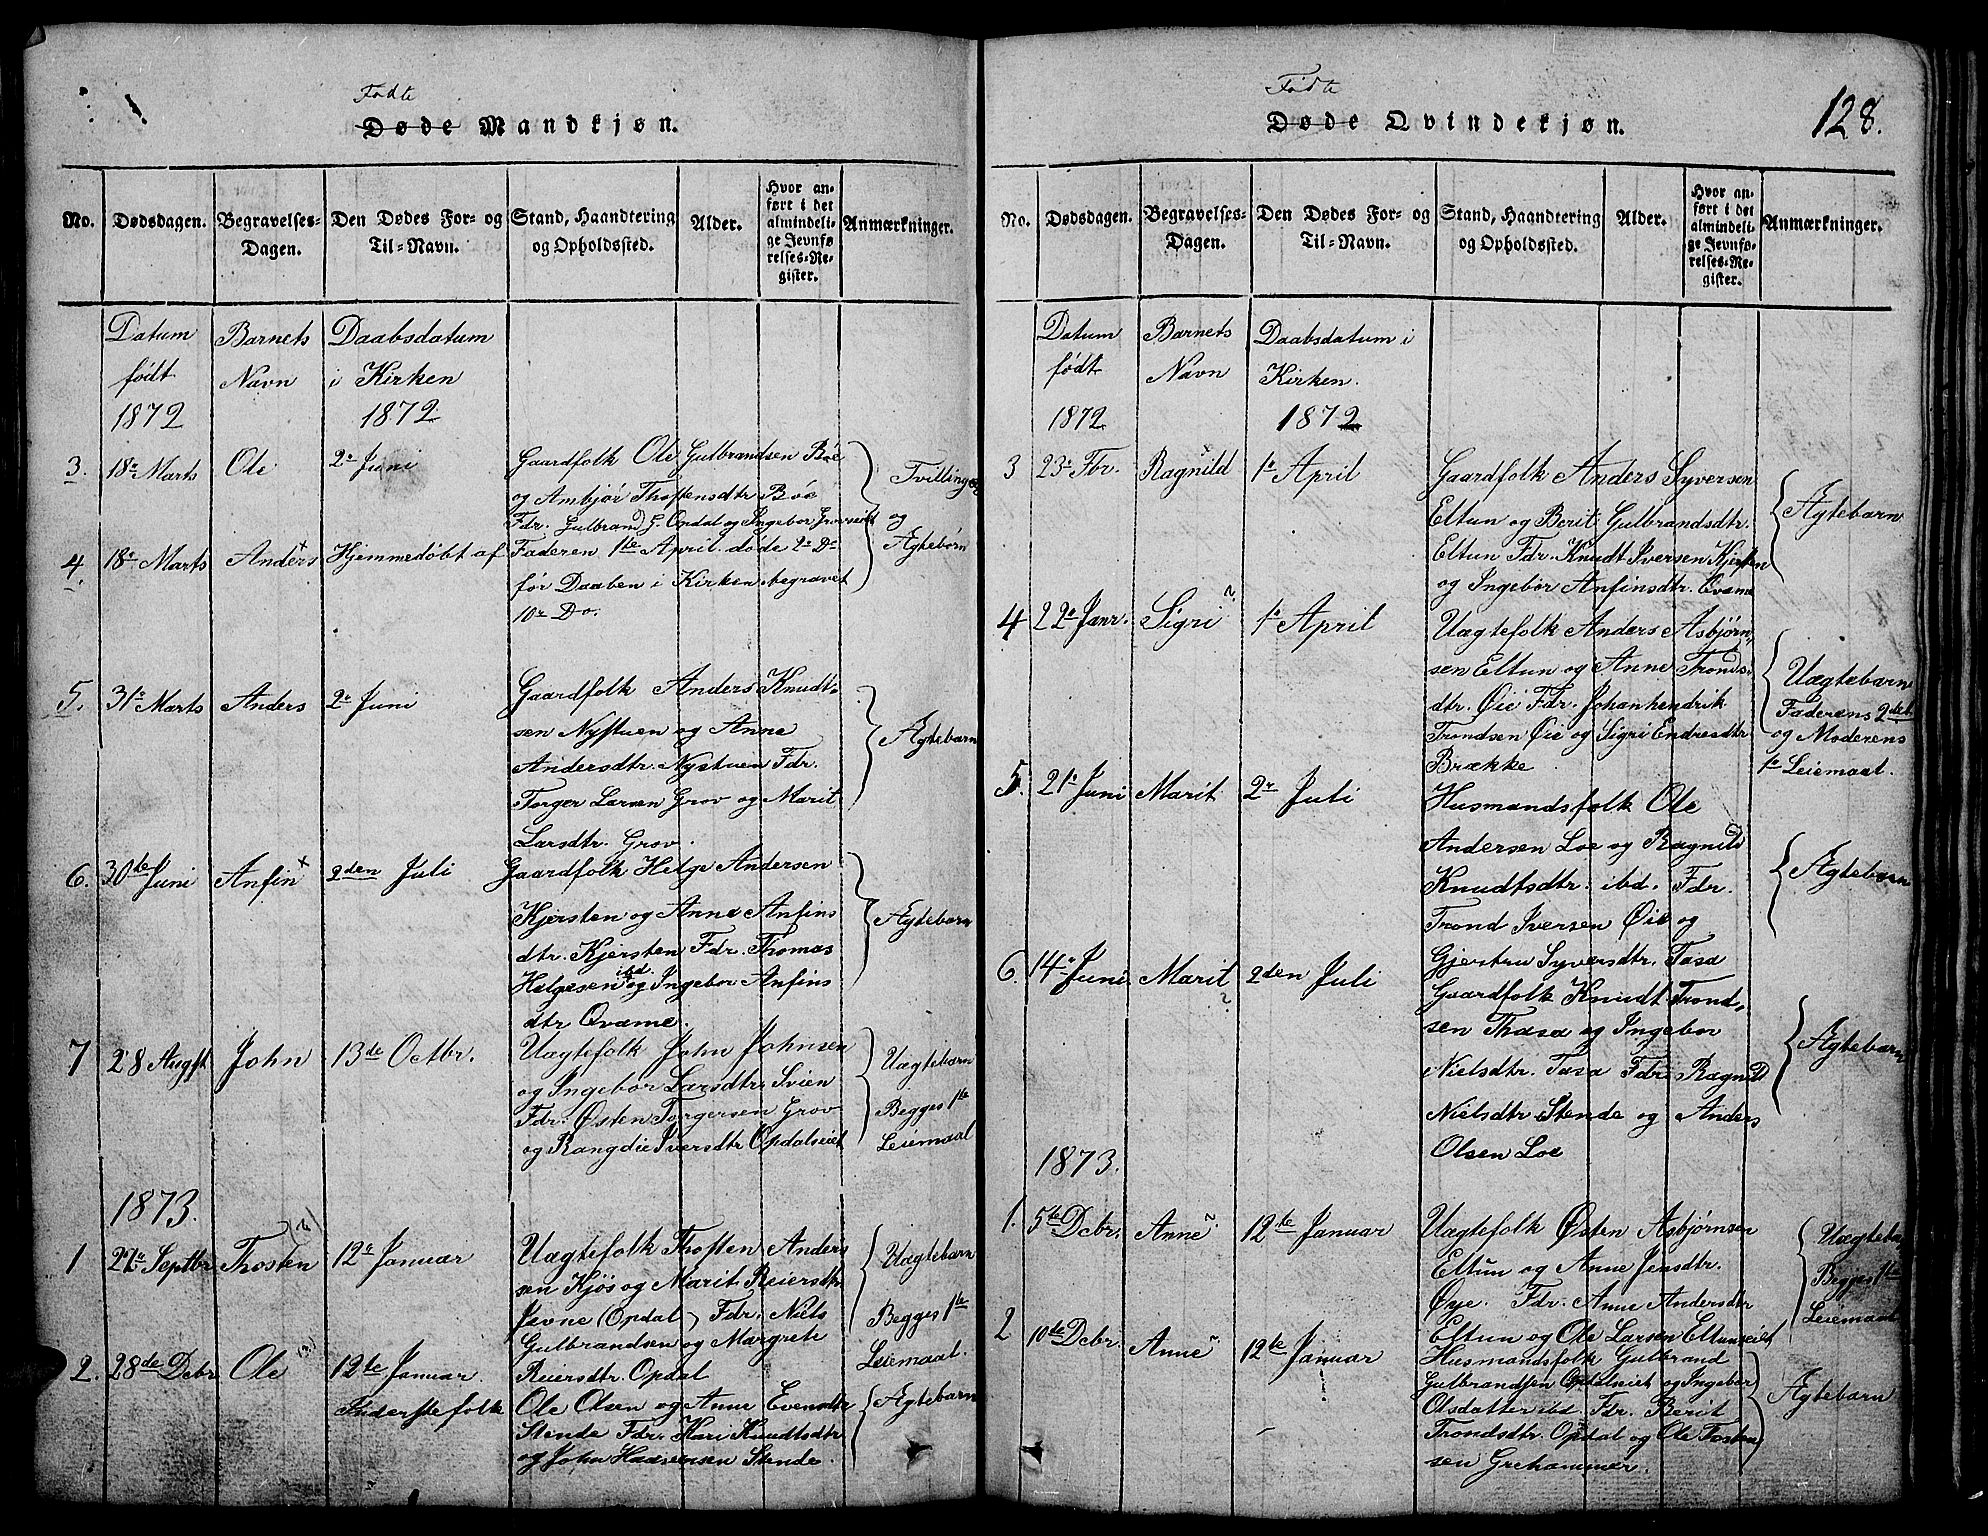 Fødte
Døde Mandkjøn.
No. Dødsdagen. Begravelses-Dagen. Den Dødes For- og Til-Navn. Stand, Haandtering og Opholdssted. Alder. Hvor anført i det almindelige Jevnførelses-Register. Anmærkninger.
Datum Barnets Daabsdatum
født Navn i Kirken
1872 1872
3. 18de Marts Ole 2de Juni Gaardfolk Ole Gulbrandsen Böe Tvillinger
og Ambjør Thostensdtr Böe
Fdr. Gulbrand G. Opdal og Ingebor Groveiet og
4. 18de Marts Anders Hjemmedøbt af Faderen 1te April døde 2de Do Ægtebørn
før Daaben i Kirken Begravet
10de Do.
5. 31te Marts Anders 2de Juni Gaardfolk Anders Knudt-
sen Nystuen og Anne Ægtebarn
Andersdtr. Nystuen Fdr.
Torger Larsen Grov og Marit
Larsdtr. Grov.
6. 30de Juni Anfin 2den Juli Gaardfolk Helge Andersen
Kjersten og Anne Anfins Ægtebarn
dtr. Kjersten Fdr. Thomas
Helgesen ibd. og Ingebor Anfins
dtr Qvame.
7 28 Augst John 13de Octbr. Uægtefolk John Johnsen Uægtebarn
og Ingebor Larsdtr. Svien
Fdr. Østen Torgersen Grov Begges 1te
og Rangdie Iversdtr Opdalseiet Leiemaal
1873.
1 27de Septbr Thosten 12te Januar Uægtefolk Thosten Anders Uægtebarn
sen Kjøs og Marit Reiersdtr
Jevne (Opdal) Fdr. Niels Begges 1te
Gulbrandsen og Margrete Leiemaal.
2. 28de Debr Ole 12te Januar Reiersdtr. Opdal
Inderstefolk Ole Olsen og Anne Evensdtr Ægtebarn
Stende Fdr. Mari Knudtsdtr
og John Haaversen Stende.
Fødte
Døde Qvindekjøn. 128.
No. Dødsdagen. Begravelses-Dagen. Den Dødes For- og Til-Navn. Stand, Haandtering og Opholdssted. Alder. Hvor anført i det almindelige Jevnførelses-Register. Anmærkninger.
Datum Barnets Daabsdatum i
født Navn Kirken.
1872 1872
3 23de Fbr. Ragnild 1te April Gaardfolk Anders Syversen
Eltun og Berit Gulbrandsdtr. Ægtebarn
Eltun Fdr. Knudt Iversen Kjersten
og Ingebor Anfinsdtr. Qvame
4 22de Janr. Sigri 1te April Uægtefolk Anders Asbjørn-
sen Eltun og Anne Tronds- Uægtebarn
dtr. Øie Fdr. Johanhendrik Faderens 2det
Trondsen Øie og Sigri Endresdtr og Moderens
Brække 1te Leiemaal.
5. 21de Juni Marit 2de Juli Husmandsfolk Ole
Andersen Loe og Ragnild
Knudtsdtr. ibd. Fdr. Ægtebarn
Trond Iversen Øie og
Gjertru Syversdtr. Tasa
6. 14de Juni Marit 2den Juli Gaardfolk Knudt Trond-
sen Thasa og Ingebor Ægtebarn
Nielsdtr. Tasa Fdr. Ragnild
Nielsdtr Stende og Anders
Olsen Loe
1873.
1. 5te Debr. Anne 12te Januar Uægtefolk Østen Asbjørnsen Uægtebar
Eltun og Anne Jensdtr. Begges 1te
Øye. Fdr. Anne Andersdtr Leiemaal
Eltun og Ole Larsen Eltunseiet
2 10de Debr. Anne 12te Januar Husmandsfolk Gulbrand
Gulbrandsen Opdalseiet og Ingebor Ægtebarn
Olsdatter ibd. Fdr. Berit
Trondsdtr. Opdal og Ole Tosten
sen Grehammer.